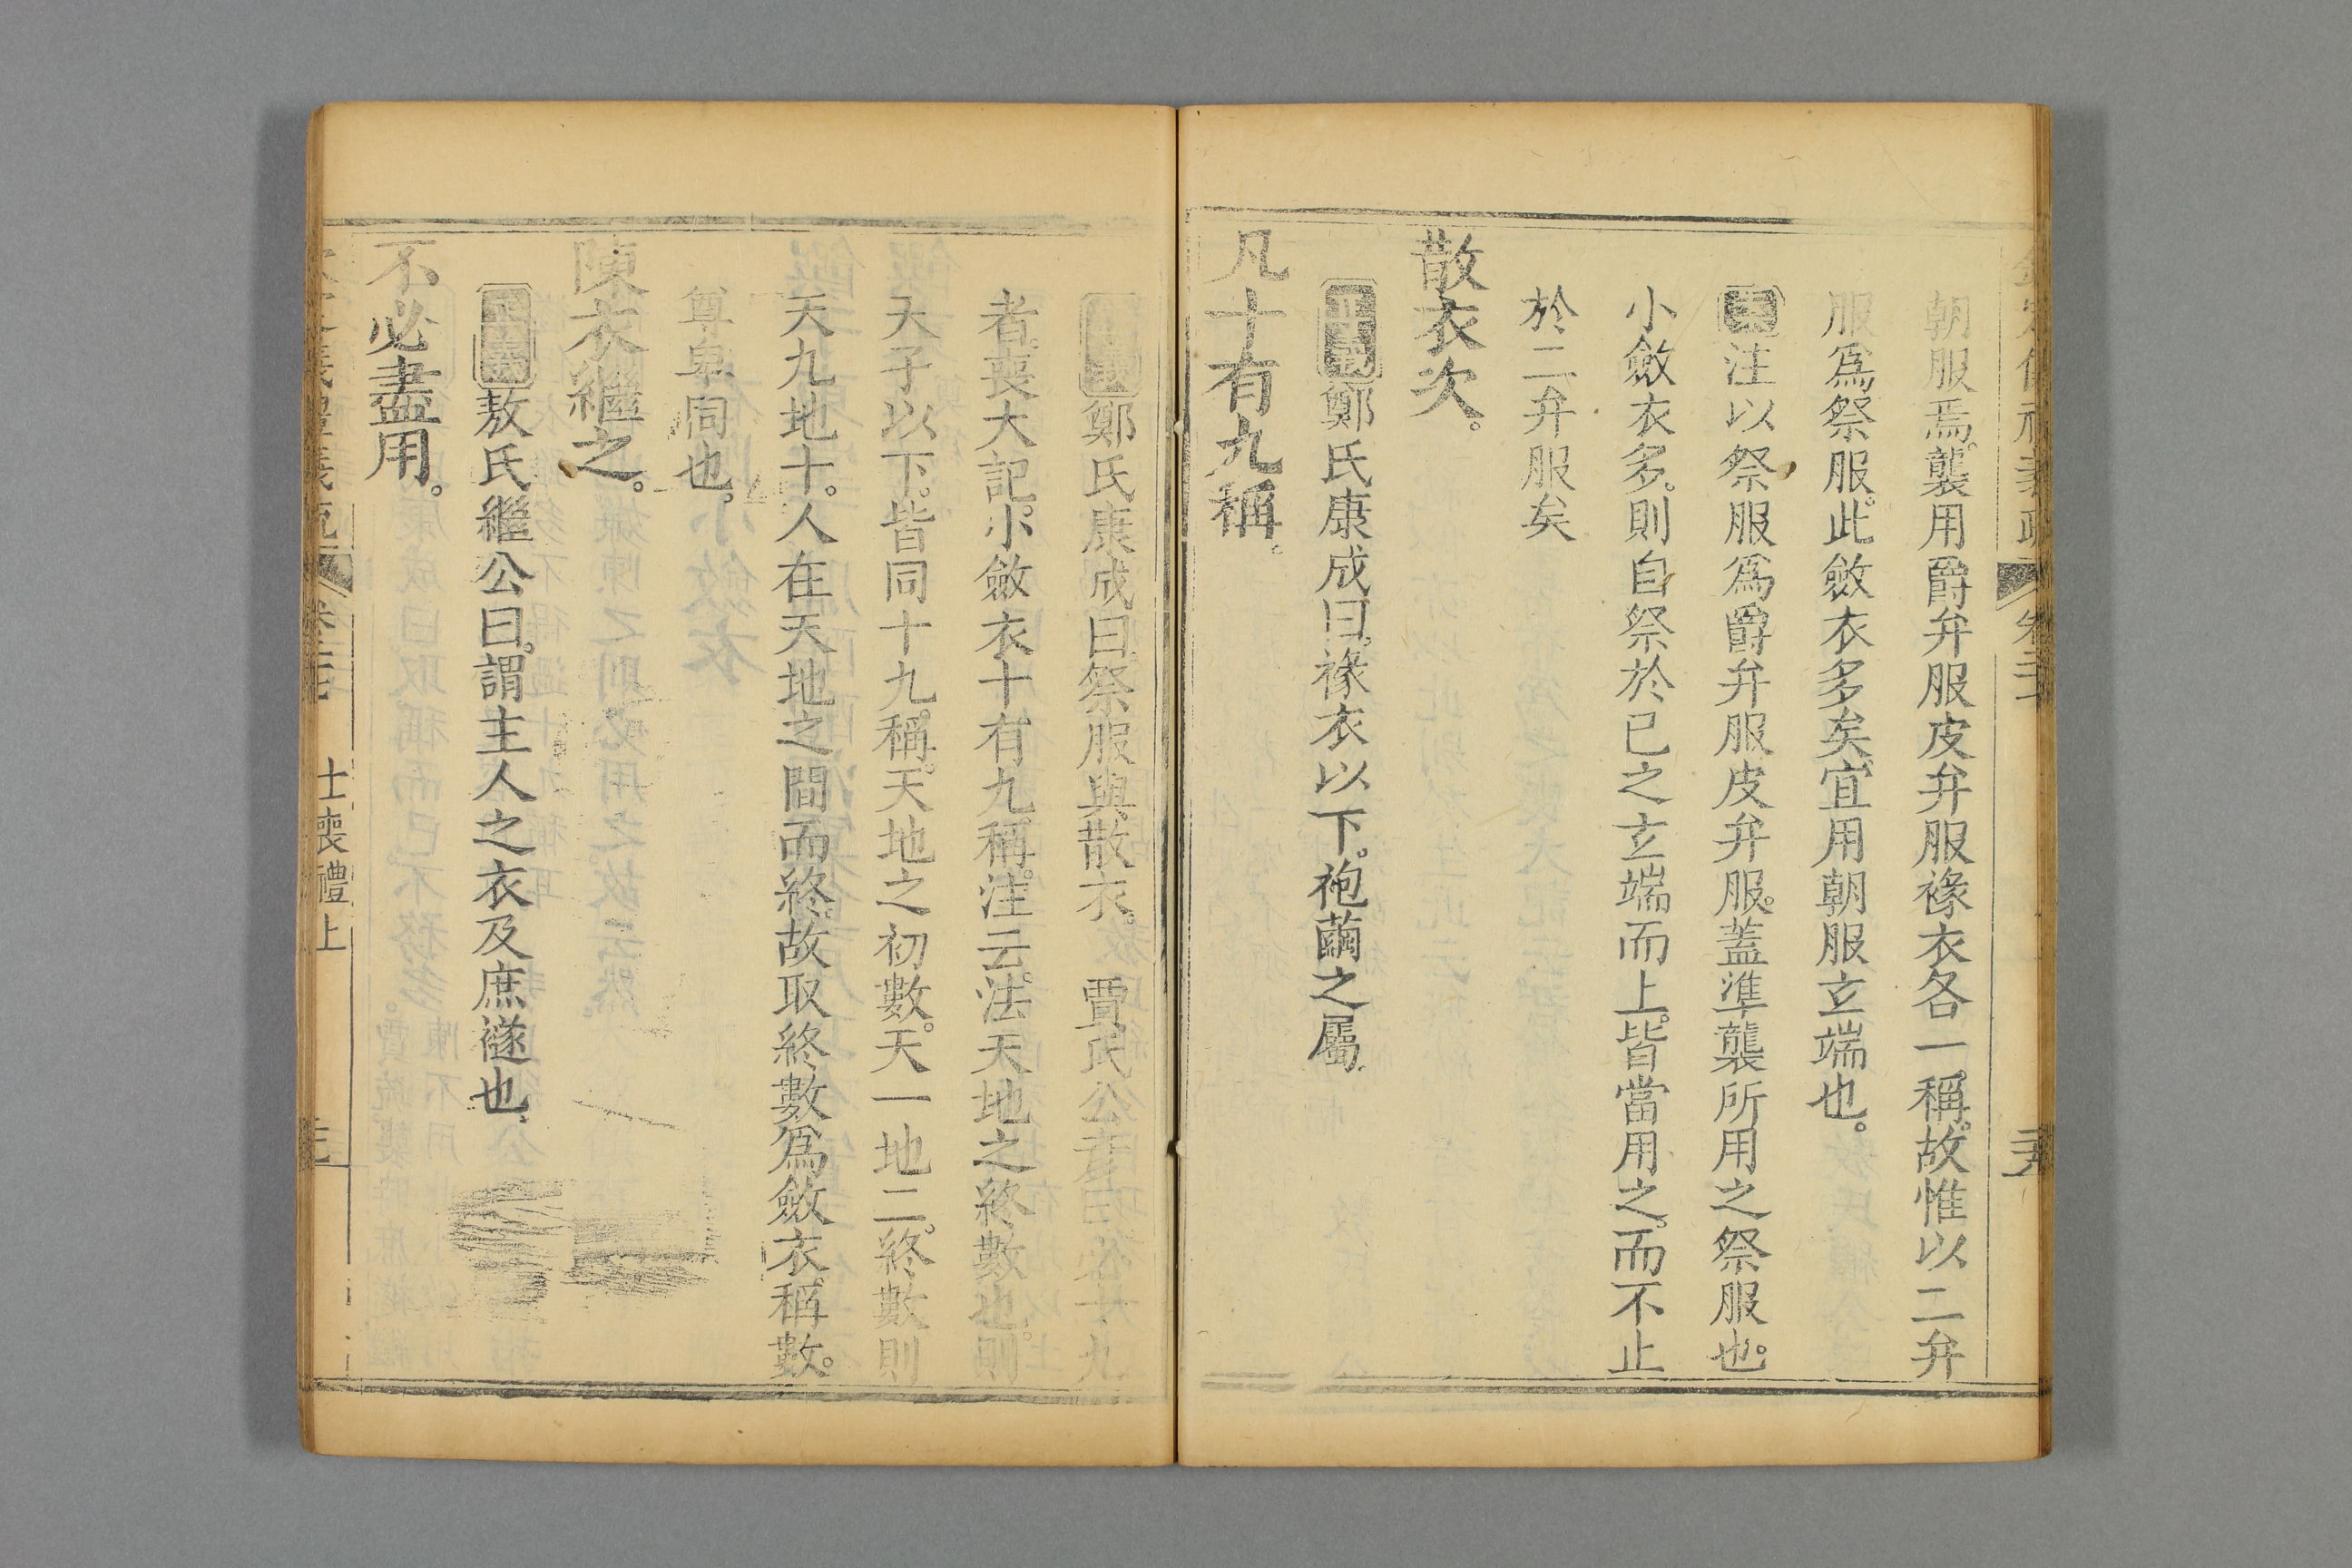 朝服焉。襲用爵弁服皮弁服褖衣各一稱。故惟以二弁
服爲祭服。此斂衣多矣。宜用朝服玄端也。
案注以祭服爲爵弁服皮弁服。蓋準襲所用之祭服也。
小斂衣多。則自祭於已之玄端而上。皆當用之。而不止
於二弁服矣
散衣次。
正義鄭氏康成曰。褖衣以下。袍繭之屬。
凡十有九稱。
正義鄭氏康成曰祭服與散衣。 賈氏公彥曰必十九
者。喪大記。小斂衣十有九稱。注云。法天地之終數也。則
天子以下。皆同十九稱。天地之初數。天一地二。終數則
天九地十。人在天地之間而終。故取終數爲斂衣稱數。
尊卑同也。
陳衣繼之。
正義敖氏繼公曰。謂主人之衣及庶禭也。
不必盡用。
士喪禮上